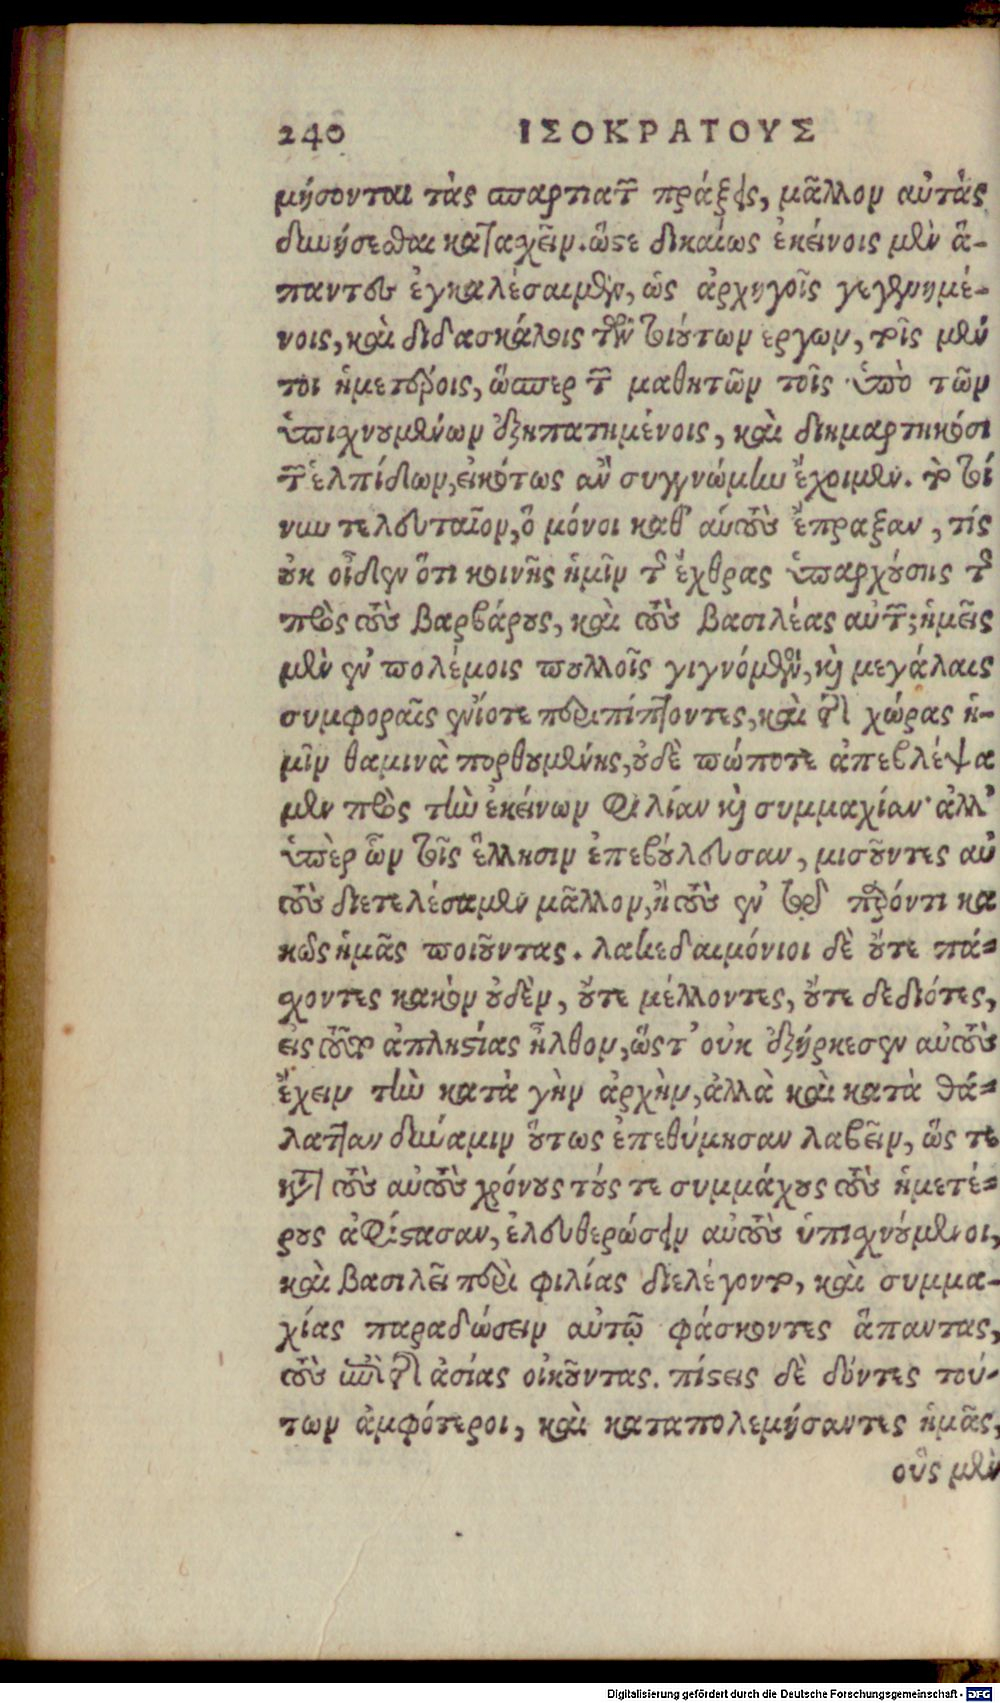 240 ΙΣΟΚΡΑΤΟΥΣ
μήσονται τὰς σπαρτιατῶν πράξεις, μᾶλλον αὐτὰς
δυνήσεσθαι κατασχεῖν. ὥστε δικαίως ἐκείνοις μὲν ἂ-
παντες ἐγκαλέσαιμεν, ὡς ἀρχηγοῖς γεγενημέ-
νοις, καὶ διδασκάλοις τῶν τοιούτων ἔργων, τοῖς μέν
τοι ἡμετέροις, ὥσπερ τῶν μαθητῶν τοῖς ὑπὸ τῶν
ὑπισχνουμένων ἐξηπατημένοις, καὶ διημαρτηκόσι
τῶν ἐλπίδων, εἰκότως ἂν συγγνώμην ἔχοιμεν. τὸ τοί
νυν τελευταῖον, ὃ μόνοι καθ' αὑτοὺς ἔπραξαν, τίς
οὐκ οἶδεν ὅτι κοινῆς ἡμῖν τῆς ἔχθρας ὑπαρχούσης τῆς
πρὸς τοὺς βαρβάρους, καὶ τοὺς βασιλέας αὐτῶν; ἡμεῖς
μὲν ἐν πολέμοις πολλοῖς γιγνόμενοι, καὶ μεγάλαις
συμφοραῖς ἐνίοτε περιπίπτοντες, καὶ τῆς χώρας ἡ-
μῖν θαμινὰ πορθουμένης, οὐδὲ πώποτε ἀπεβλέψα
μεν πρὸς τὴν ἐκείνων φιλίαν καὶ συμμαχίαν· ἀλλ'
ὑπὲρ ὧν τοῖς ἕλλησιν ἐπεβούλευσαν, μισοῦντες αὐ
τοὺς διετελέσαμεν μᾶλλον, ἢ τοὺς ἐν τῷ παρόντι κα
κῶς ἡμᾶς ποιοῦντας. λακεδαιμόνιοι δὲ οὔτε πά-
σχοντες κακὸν οὐδὲν, οὔτε μέλλοντες, οὔτε δεδιότες,
εἰς τοῦτο ἀπληστίας ἦλθον, ὥστ' οὐκ ἐξήρκεσεν αὐτοὺς
ἔχειν τὴν κατὰ γὴν ἀρχὴν, ἀλλὰ καὶ κατὰ θά-
λατταν δύναμιν οὕτως ἐπεθύμησαν λαβεῖν, ὥς τε
κατὰ τοὺς αὐτοὺς χρόνους τούς τε συμμάχους τοὺς ἡμετέ-
ρους ἀφίστασαν, ἐλευθερώσειν αὐτοὺς ὑπισχνούμενοι,
καὶ βασιλεῖ περὶ φιλίας διελέγοντο, καὶ συμμα-
χίας παραδώσειν αὐτῷ φάσκοντες ἅπαντας,
τοὺς ἐπὶ τῆς ἀσίας οἰκοῦντας. πίστεις δὲ δόντες τού-
των ἀμφότεροι, καὶ καταπολεμήσαντες ἡμᾶς,
οὓς μὲν
Digitalisierung gefördert durch die Deutsche Forschungsgemeinschaft - DFG